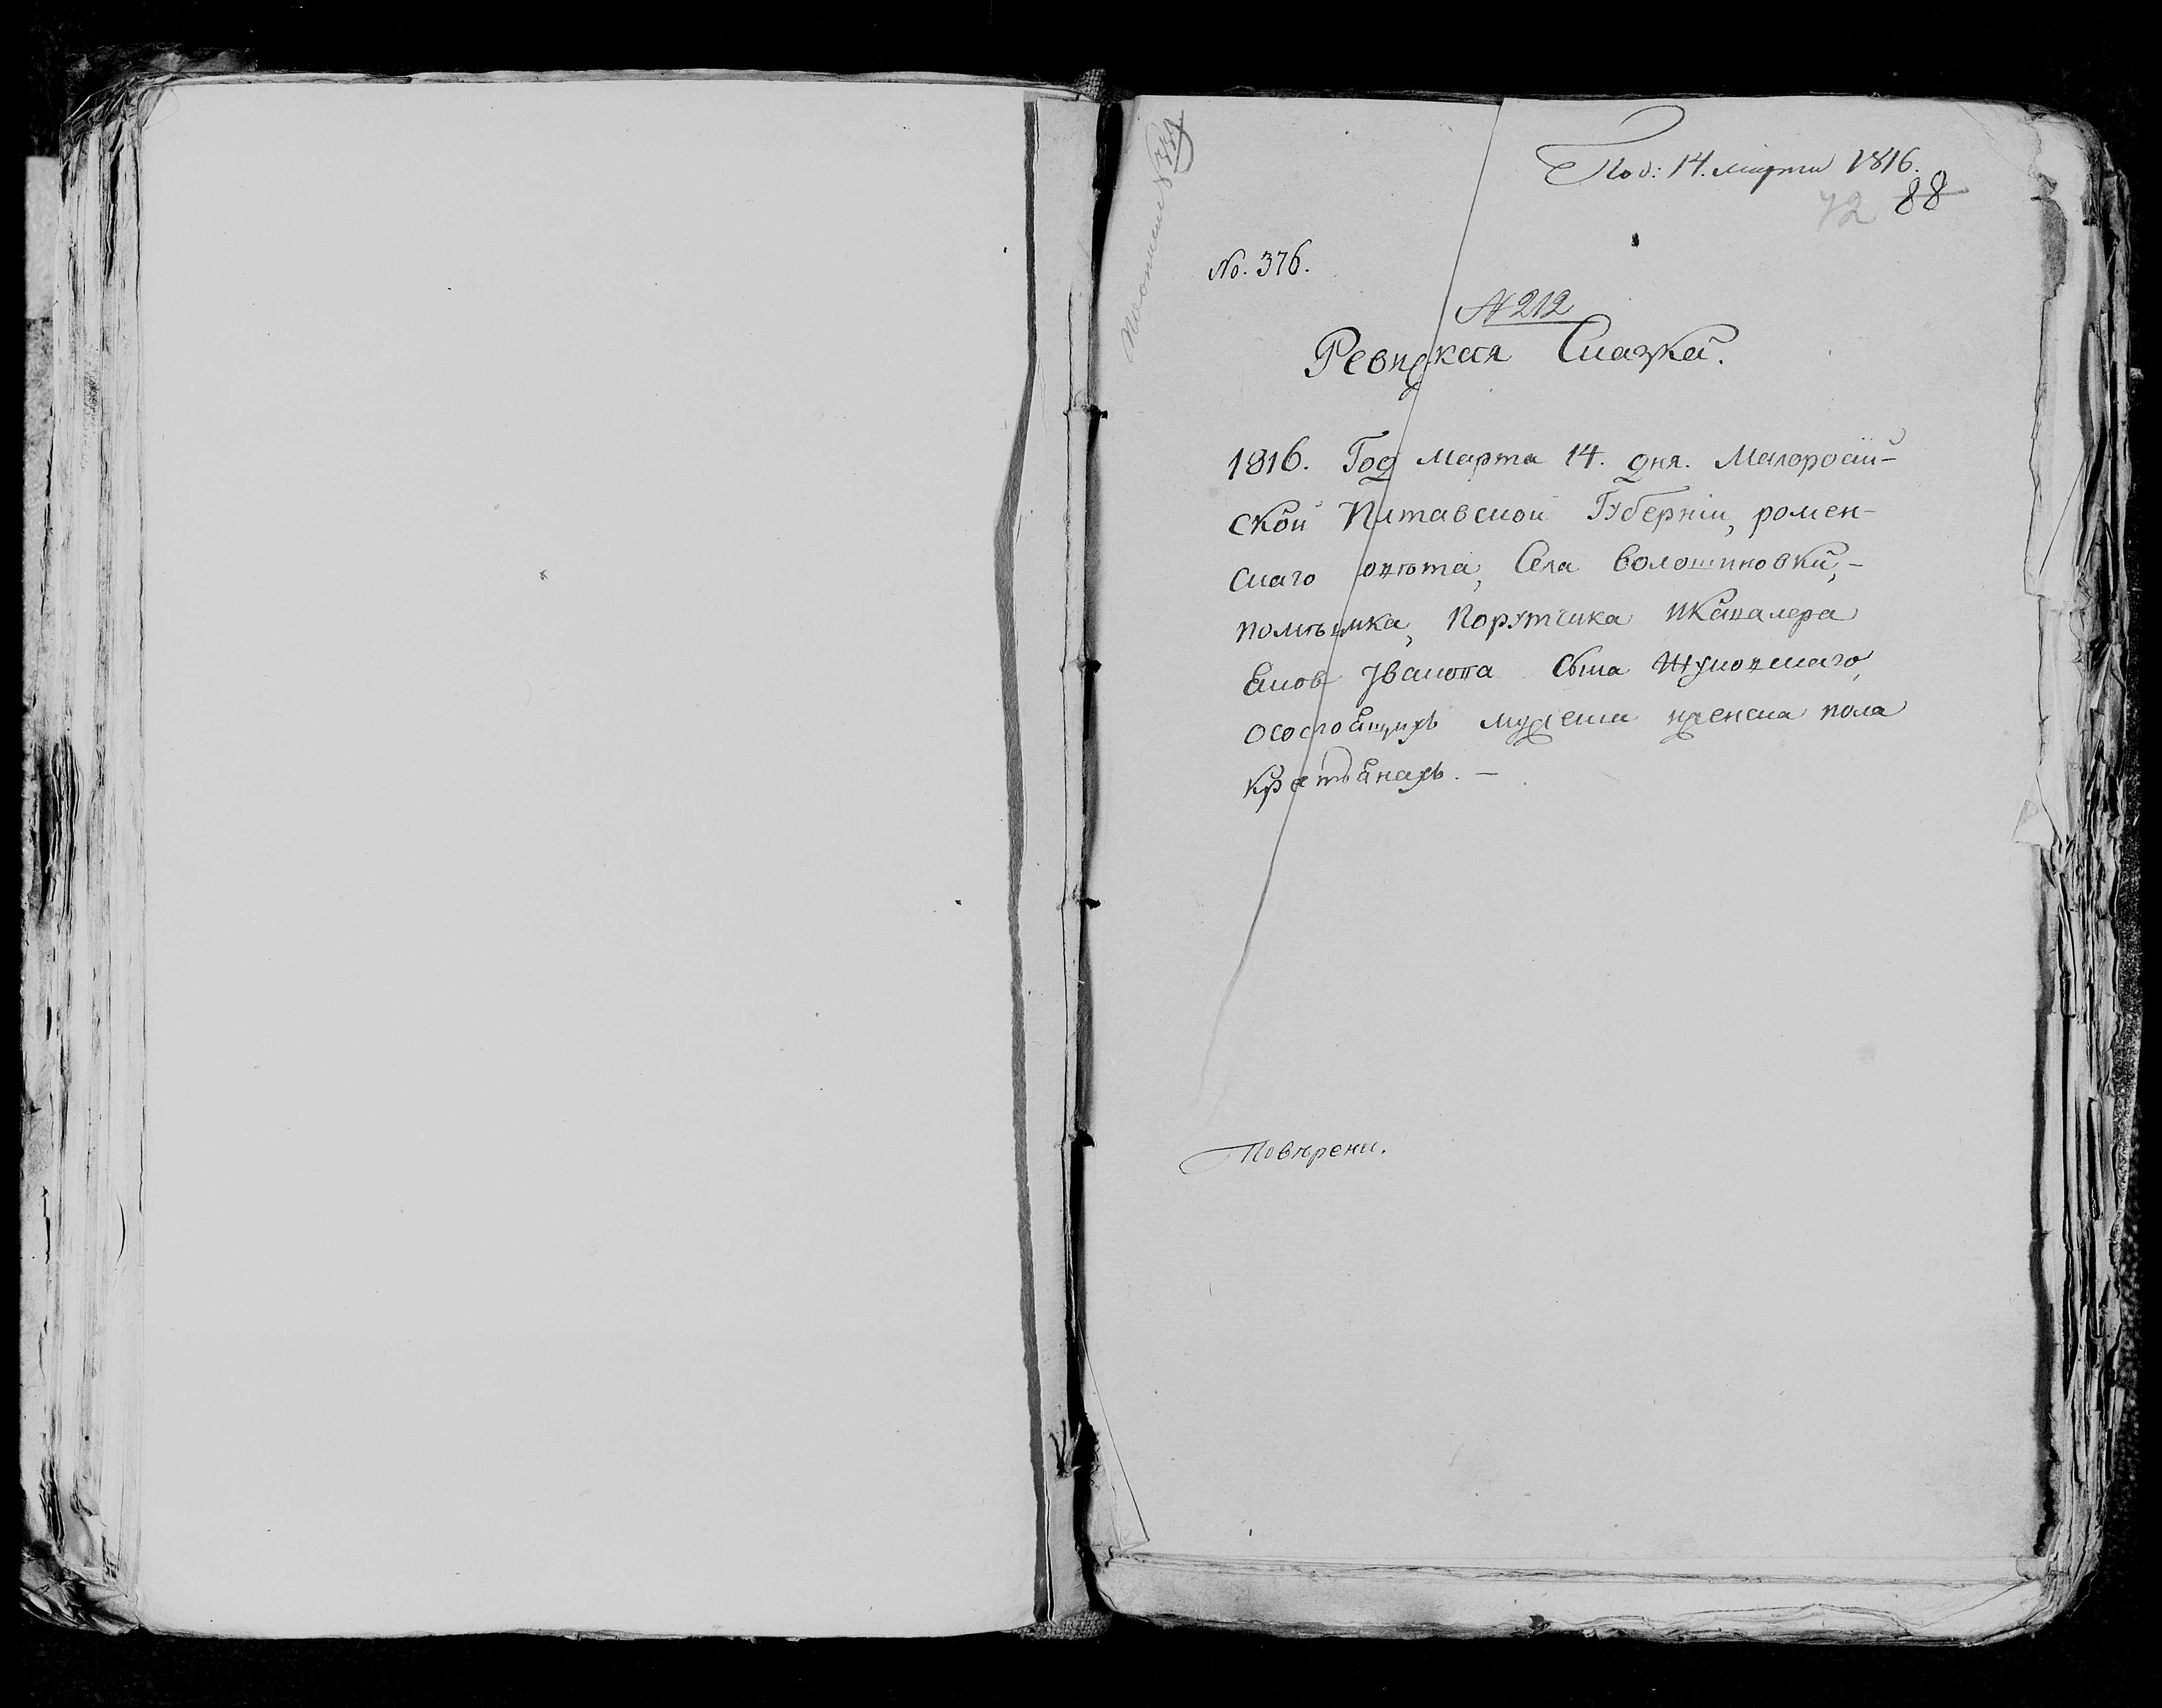 Под: 14. марта 1816.
88
72
No. 376.
№ 212
Ревизкая Сказка.
1816. Год Марта 14. дня. Малоросій-
ской Полтавской Губерніи, ромен-
скаго повѣта, Села волошиновки,-
помѣщика, Порутчика икавалера
Ивана сына
осостоящихъ мужеска иженска пола
крестьянахъ. —
Повѣрена.